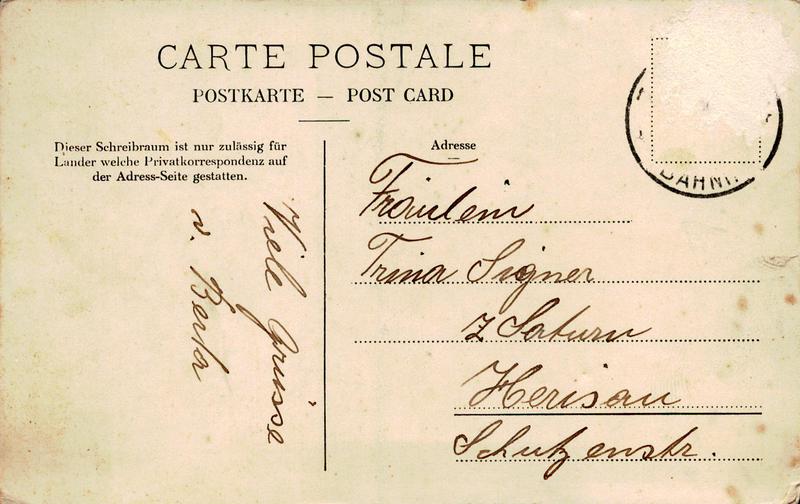 CARTE POSTALE
POSTKARTE — POST CARD
Dieser Schreibraum ist nur zulässig für
Länder welche Privatkorrespondenz auf
der Adress-Seite gestatten.
Viele Grüsse
v. Berta
Adresse
Fräulein
Trina Signer
z Saturn
Herisau
Schutzenstr.